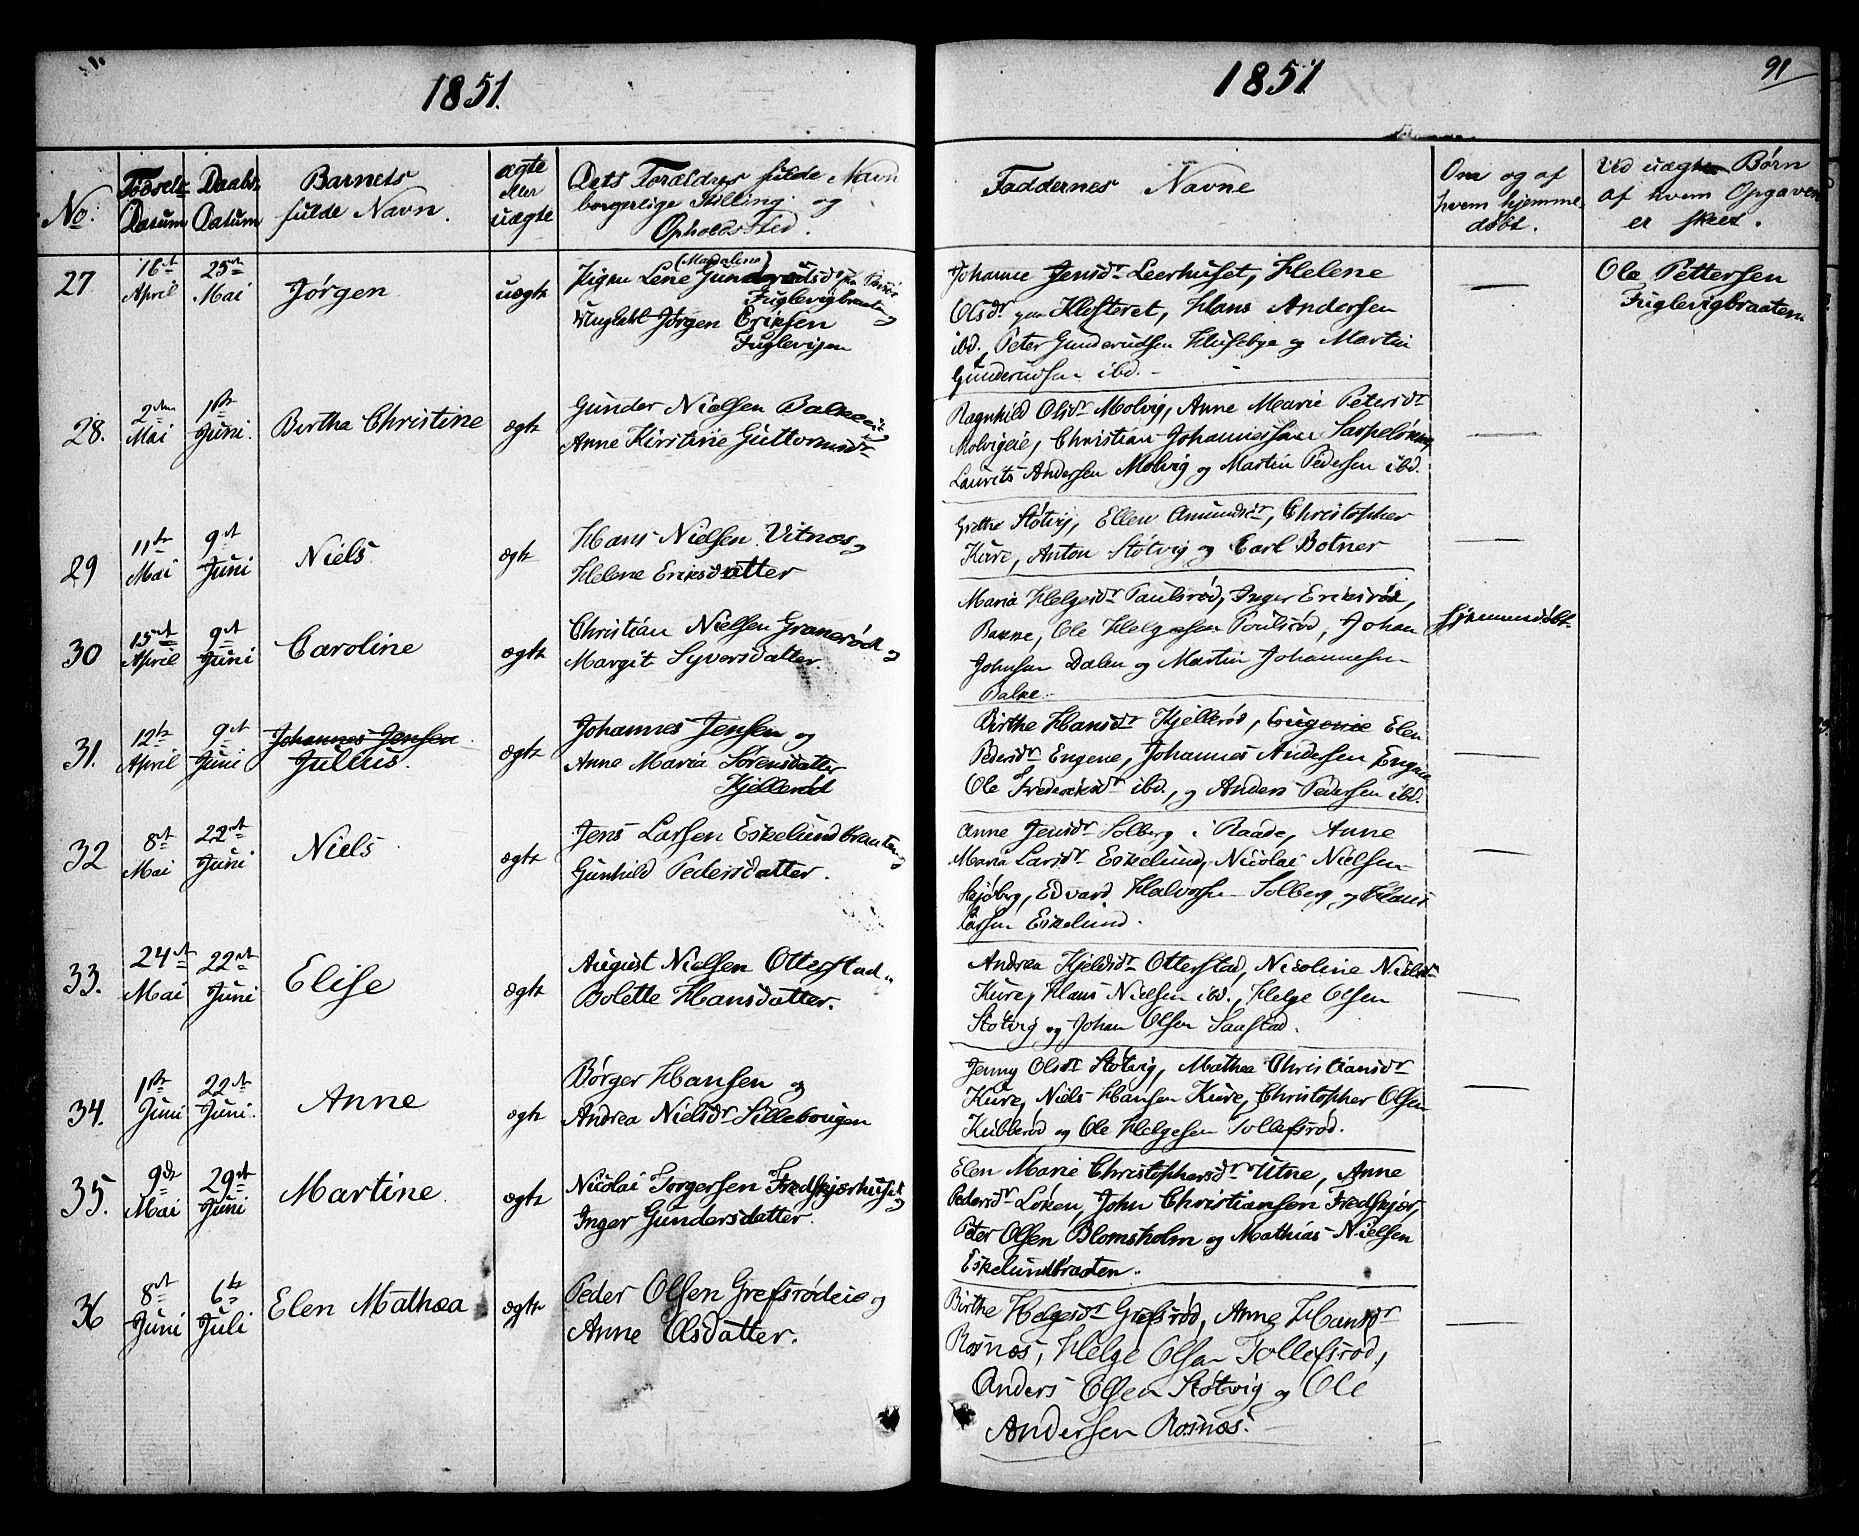 1851.
No.
Fødsels Datum
Daabs Datum
Barnets fulde Navn.
ægte eller uægte
Dets Forældres fulde Navn borgerlige Stilling og Opholdssted.
27
16de April
25de Mai
Jørgen
uægte
Pigen Lene (Magdalene)
Fuglevigbraaten og
Ungkarl Jørgen Eriksen
Fuglevigen
28.
2den Mai
1ste Juni.
Bertha Christine
ægte
Gunder Nielsen Balke og
Anne Kirstine Guttormsdr
29
11te Mai
9de Juni
Niels
ægte
Hans Nielsen Vitnæs og
Helene Eriksdatter
30
15de April
9de Juni
Caroline
ægte
Christian Nielsen Granerød og
Margit Syversdatter.
31.
12te April
9de Juni
Johannes Jensen
Julius.
ægte
Johannes Jensen og
Anne Maria Sørensdatter
Kjellerød
32
8de Mai
22de Juni
Niels
ægte
Jens Larsen Eskelundbraaten og
Gunhild Pedersdatter.
33.
24de Mai
22de Juni
Elise
ægte
August Nielsen Otterstad
Bolette Hansdatter.
34.
1ste Juni
22de Juni.
Anne
ægte
Børger Hansen og
Andrea Nielsdr Sillebougen
35.
9de Mai
29de Juni
Martine
ægte
Nicolai Torgersen Fredskjærhuset og
Inger Gundersdatter.
36
8de Juni
6te Juli
Elen Mathea
ægte
Peder Olsen Grefsrødeie og
Anne Olsdatter.
1851
91
Faddernes Navne
Om og af hvem hjemme døbt.
Ved uægte Børn af hvem Opgaven er skeet.
Johanne Jensdr Leerhuset, Helene
Olsdr Klosteret, Hans Andersen
ibd., Peter Gunderudsen Huseby og Martin
Gunderudsen ibd.
—
Ole Pettersen
Fuglevigbraaten
Ragnhild Olsdr Molvig, Anne Marie Petersdr
Molvigeie, Christian Johannessen
Laurits Andersen Molvig og Martin Pedersen ibd.
—
Grethe Støtvig, Ellen Amundsdr, Christopher
Kure, Anton Støtvig og Carl Botner
—
Maria Helgesdr Paulsrød, Inger Eriksrød,
Bakke, Ole Helgesen Poulsrød, Johan
Johnsen Dalen og Martin Johannesen
Balke.
hjemmedøbt
Birthe Hansdr Kjellerød, Elen
Pedersdr Engene, Johannes Andersen Engene
Ole Frederiksdr ibd., og Anders Pedersen ibd.
—
Anne Jensdr Solberg i Raade, Anne
Maria Larsdr Eskelund, Nicolai Nielsen
Skjøberg, Edvard Halvorsen Solberg og Hans
Larsen Eskelund.
—
Andrea Kjeldsdr Otterstad, Nicoline Nielsdr
Kure, Hans Nielsen ibd., Helge Olsen
Støtvig og Johan Olsen Saastad.
—
Jenny Olsdr Støtvig, Mathea Christiansdr
Kure, Niels Hansen Kure, Christopher Olsen
Kubberød og Ole Helgesen Tollefsrød.
—
Elen Marie Christophersdr Utne, Anne
Pedersdr Løken, John Christiansen Fredskjær,
Peter Olsen Blomsholm og Mathias Nielsen
Eskelundbraaten.
Birthe Helgesdr Grefsrød, Anne Hansdr
Rosnæs, Helge Olsen Tollefsrød,
Anders Olsen Støtvig og Ole
Andersen Rosnæs.
—